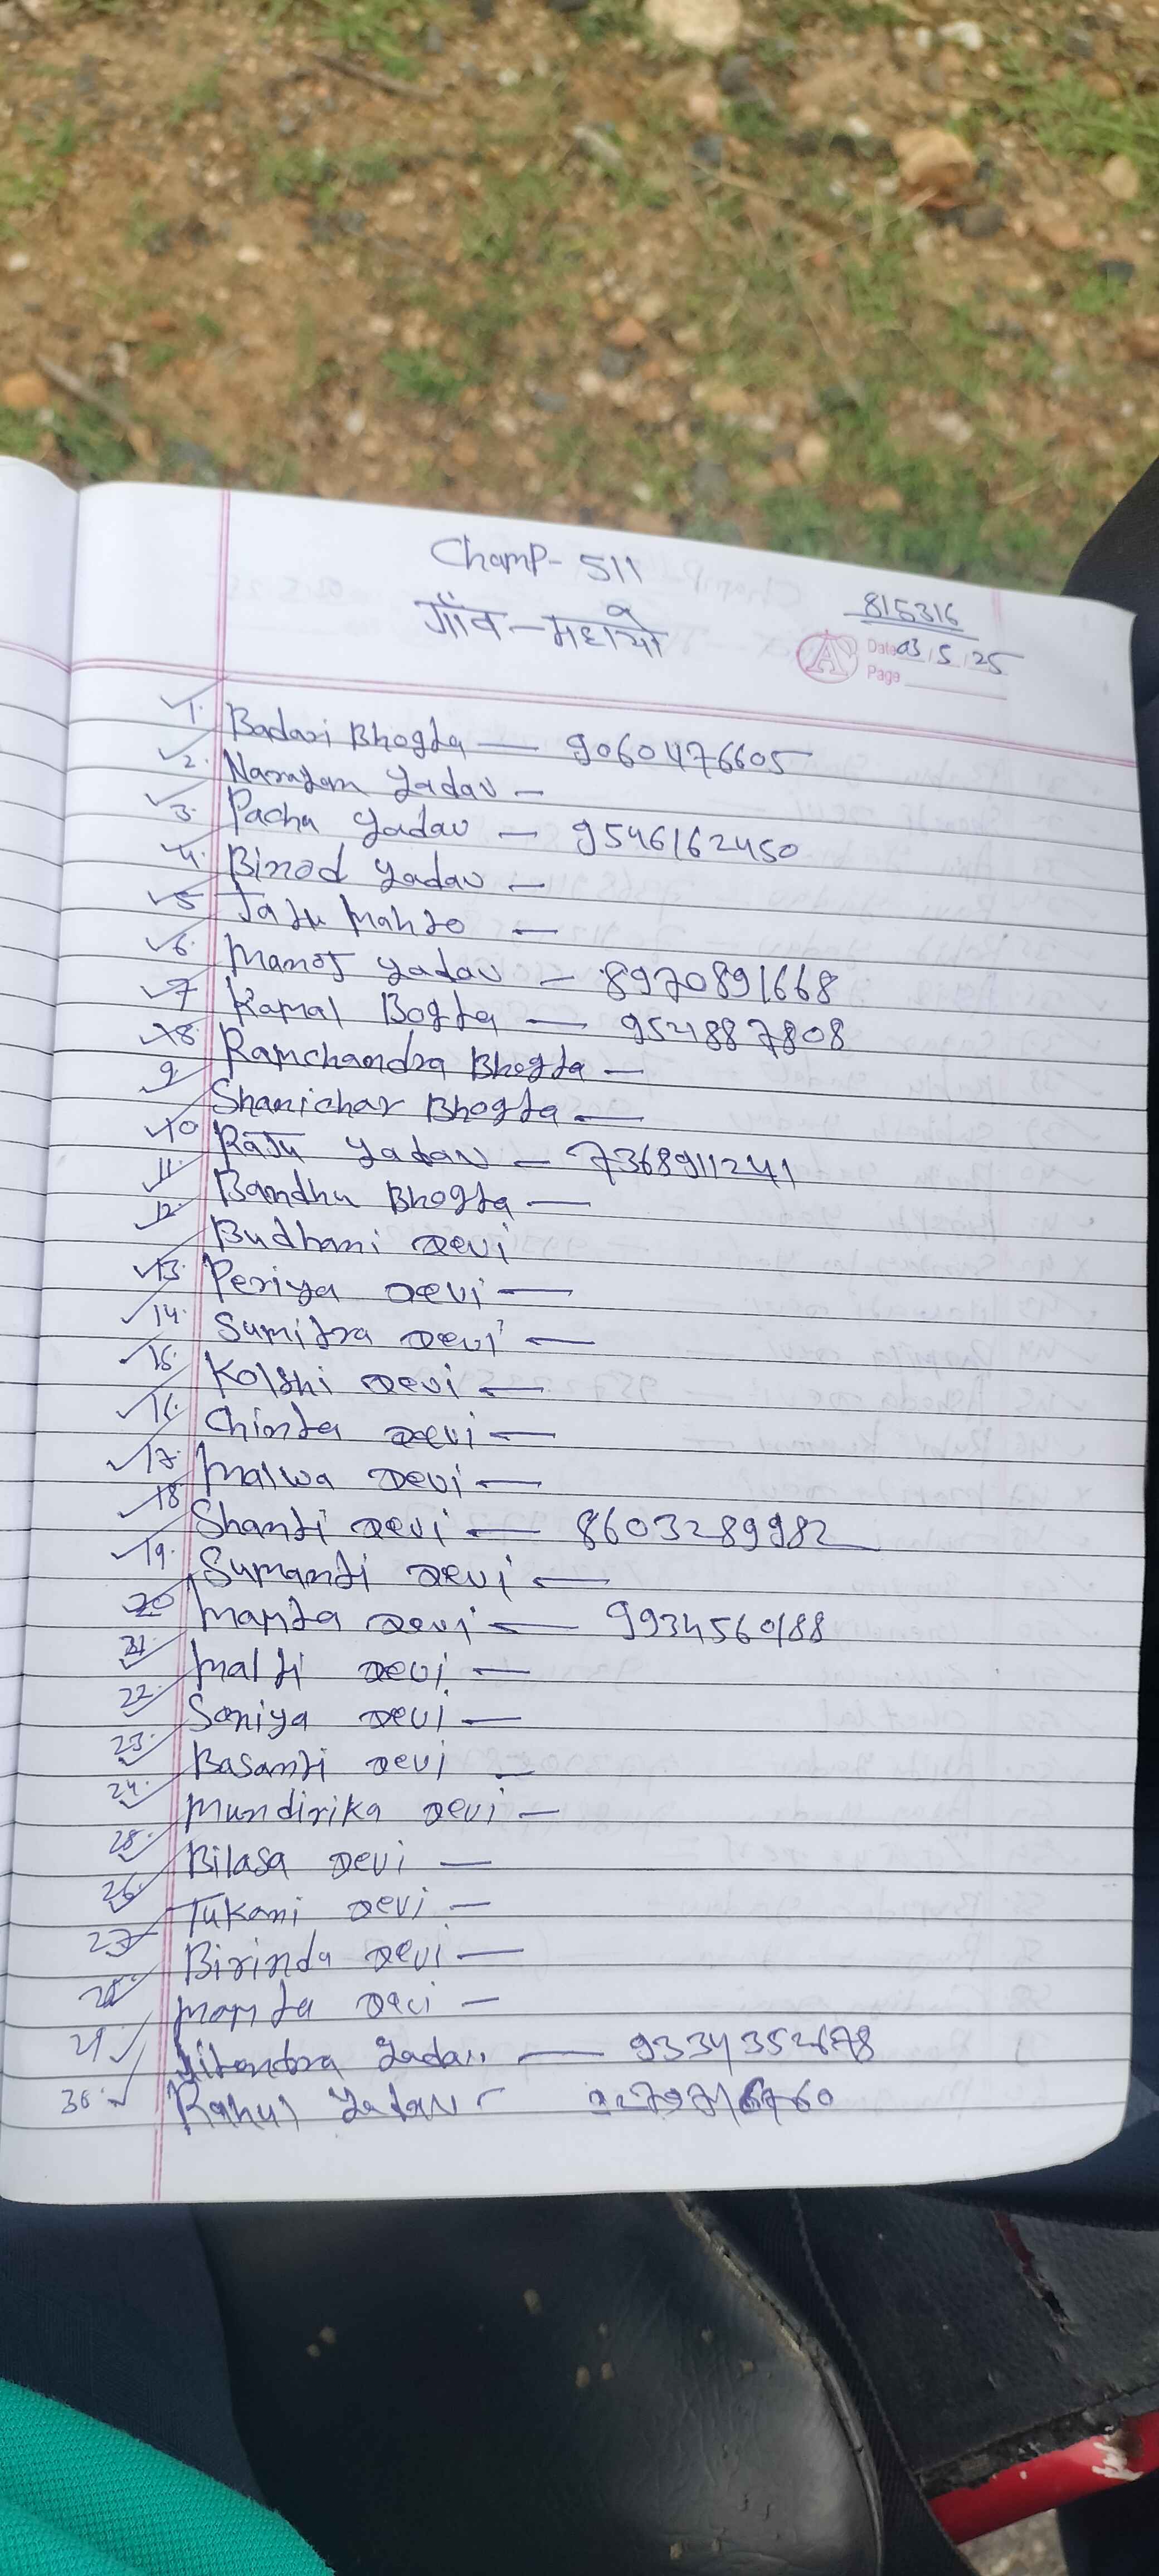 Champ- 511
गाँव-महाये
815316
Date 03/5/25
Page
1. Badari Bhogta — 9060476605
2. Narayan Yadav —
3. Pachu Yadav — 9546162450
4. Binod Yadav —
5 Jatu Mahto —
6. Manoj Yadav — 8970891668
7 Kamal Bogta —
8. Ramchandra Bhogta —
9 Shanichar Bhogta —
10 Raju Yadav — 7368911241
11. Bandhu Bhogta —
12. Budhani Devi
13. Periya Devi —
14. Sumitra Devi —
15. Kolshi Devi —
16. Chinta Devi —
17. Malwa Devi —
18 Shanti Devi — 8603289982
19. Sumanti Devi —
20 Mamta Devi — 9934560188
21. Malti Devi —
22. Soniya Devi —
23. Basanti Devi —
24. Mundirika Devi —
25. Bilasa Devi —
26. Tukani Devi —
27 Birinda Devi —
28. Mamta Devi —
29 Jitendra Yadav —
30. Rahul Yadav -